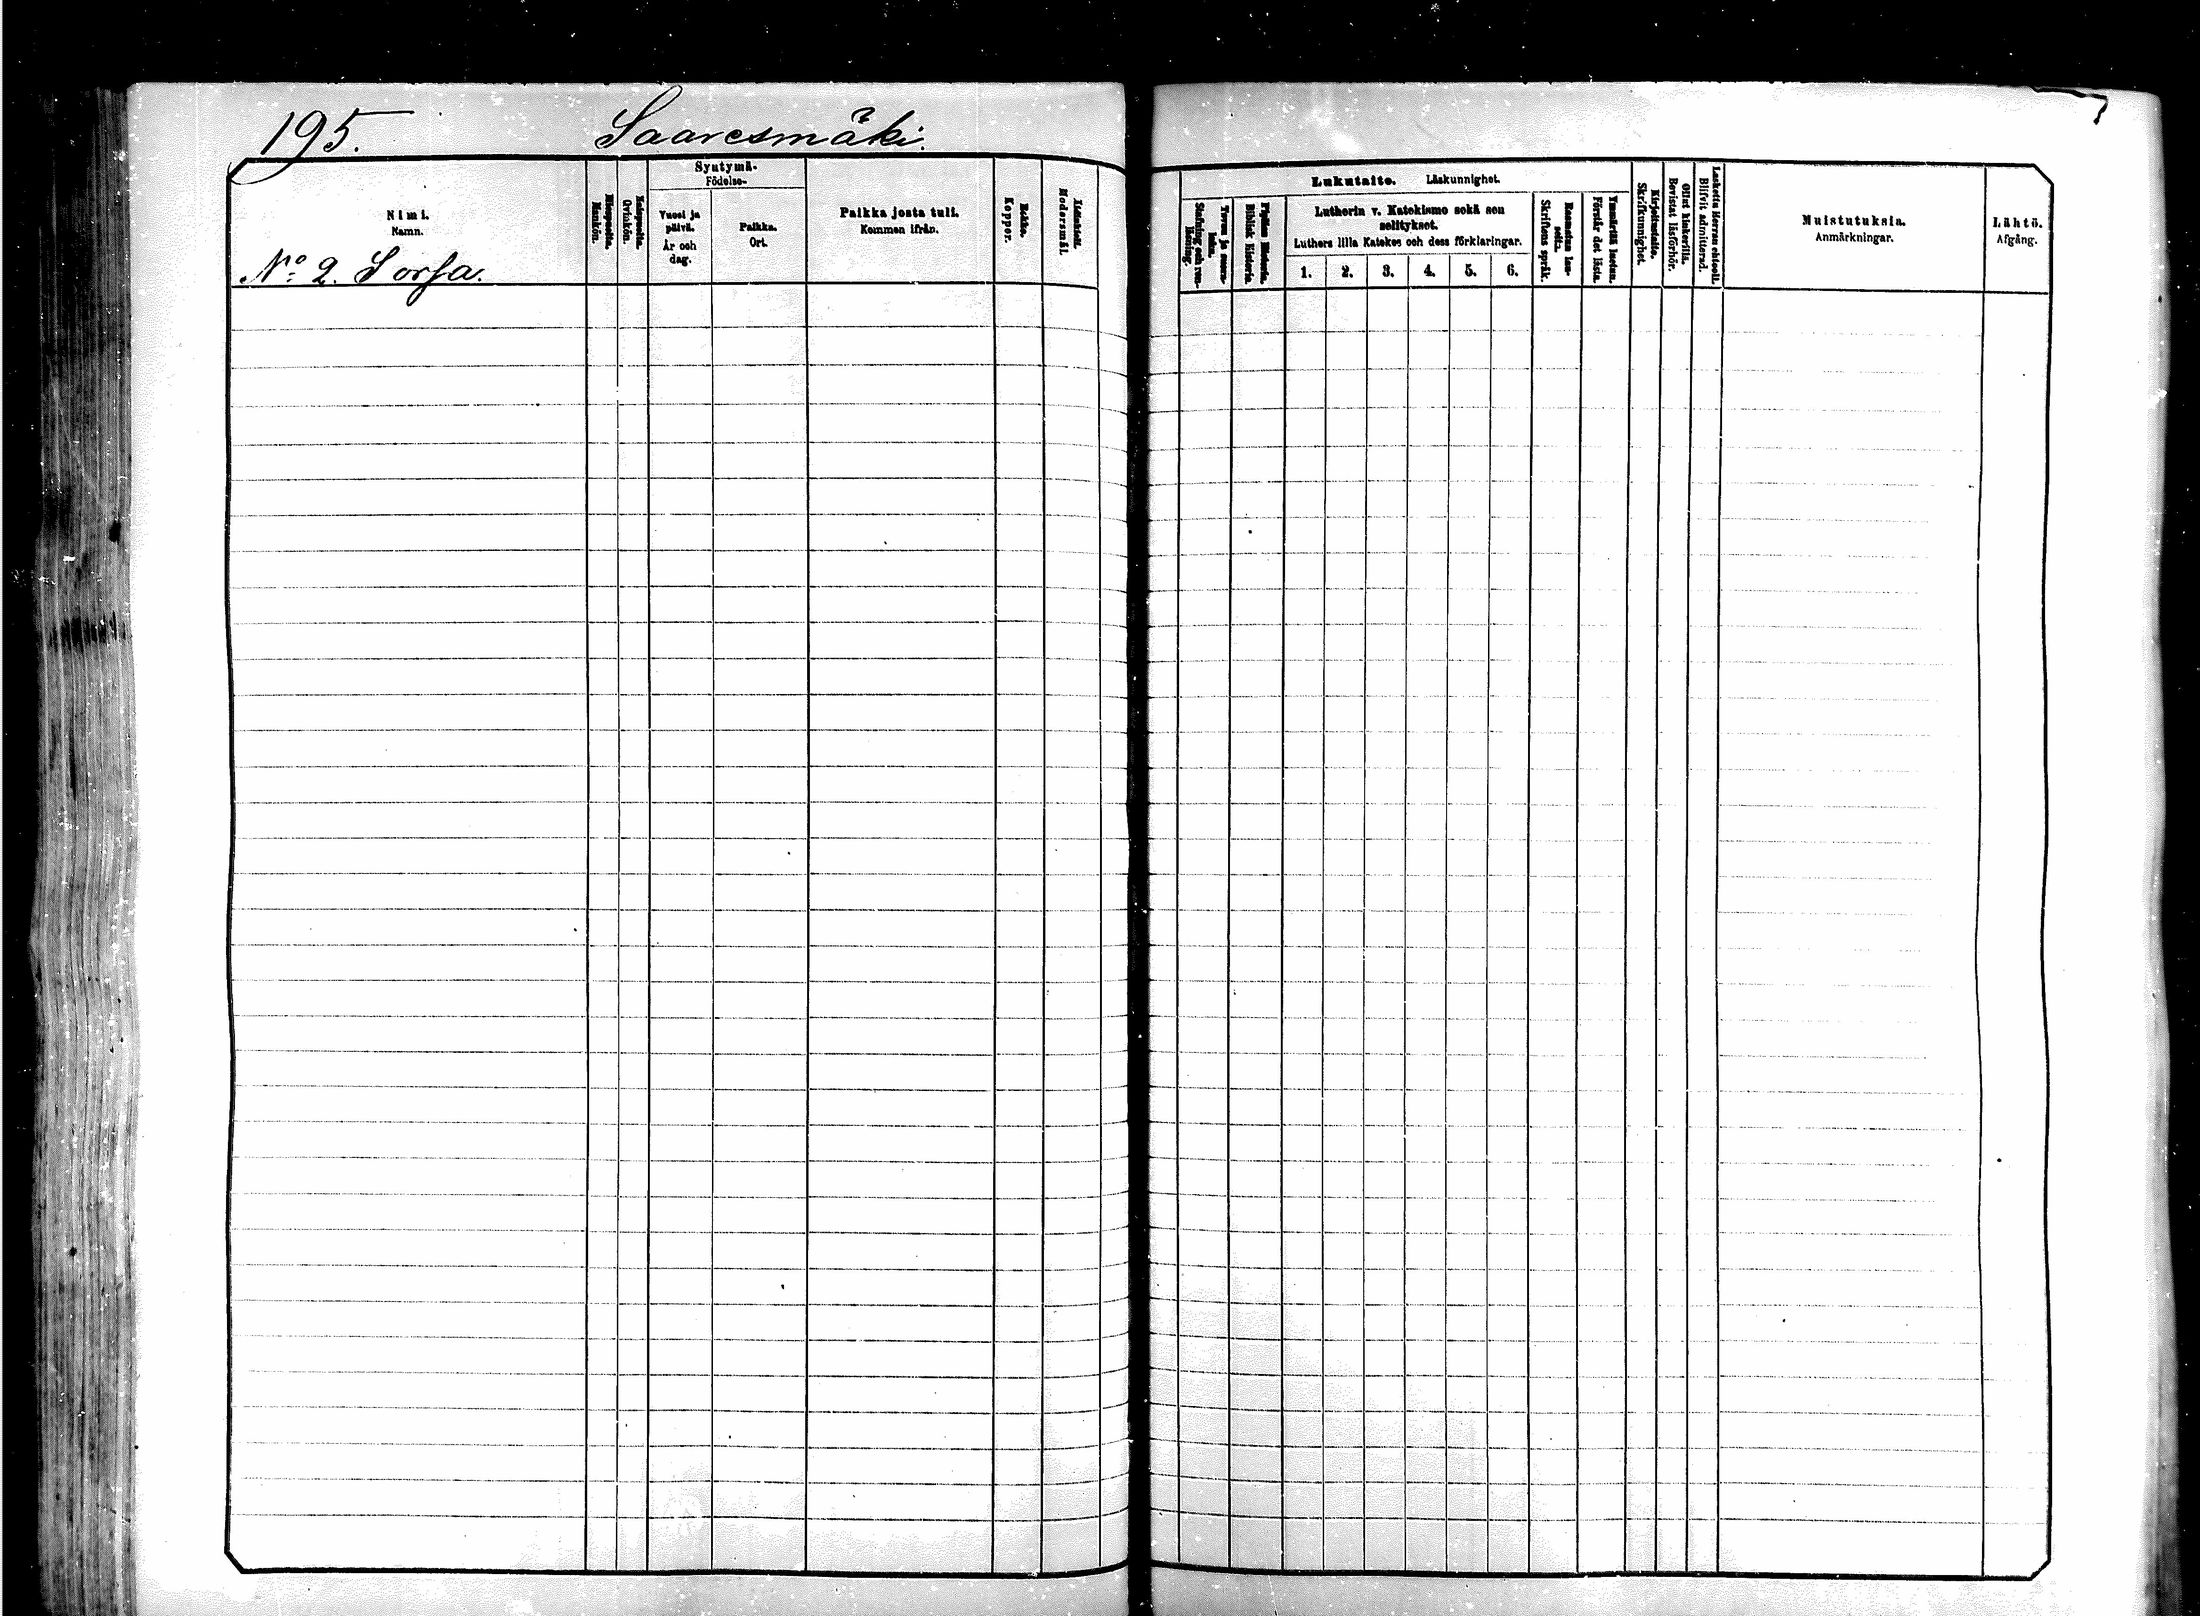 195.
Saaresmäki.
Nimi.
Namn.
No 2. Sorsa.
Miespuolia.
Mankön.
Vaimopuolia.
Qvinkön.
Syntymä-
Födelse-
Vuosi ja
päivä.
År och
dag.
Paikka.
Ort.
Paikka josta tuli.
Kommen ifrån.
Rokko.
Koppor.
Äidinkieli.
Modersmål.
Lukutaito. Läskunnighet.
Tavuu ja suora-
luku.
Stafning och ren-
läsning.
Piplian Historia.
Biblisk Historia.
Lutherin v. Katekismo sekä sen
selitykset.
Luthers lilla Katekes och dess förklaringar.
1. 2. 3. 4. 5. 6.
Raamatun lau-
seita.
Skriftens språk.
Ymmärtää luetun.
Förstår det lästa.
Kirjoitustaito.
Skrifkunnighet.
Ollut kinkerillä.
Bevistat läsförhör.
Laskettu Herran ehtoolle.
Blifvit admitterad.
Muistutuksia.
Anmärkningar.
Lähtö.
Afgång.